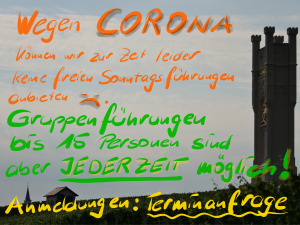 Wegen CORONA
können wir zur Zeit leider
keine freien Sonntagsführungen
anbieten ☹.
Gruppenführungen
bis 15 Personen sind
aber JEDERZEIT möglich!
Anmeldungen: Terminanfrage